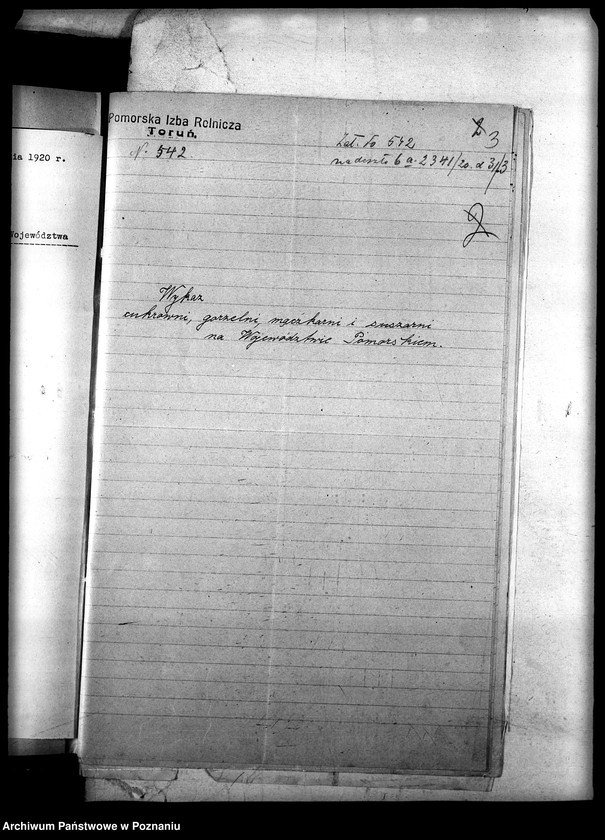 ia 1920 r.
Województwa
Pomorska Izba Rolnicza
Toruń.
N: 542
3
Zał. To 542
nadeszło 6 a. 2341/20. d 3/3
2
Wykaz
cukrowni, gorzelni, mączkarni i suszarni
na Województwie Pomorskiem.
Archiwum Państwowe w Poznaniu